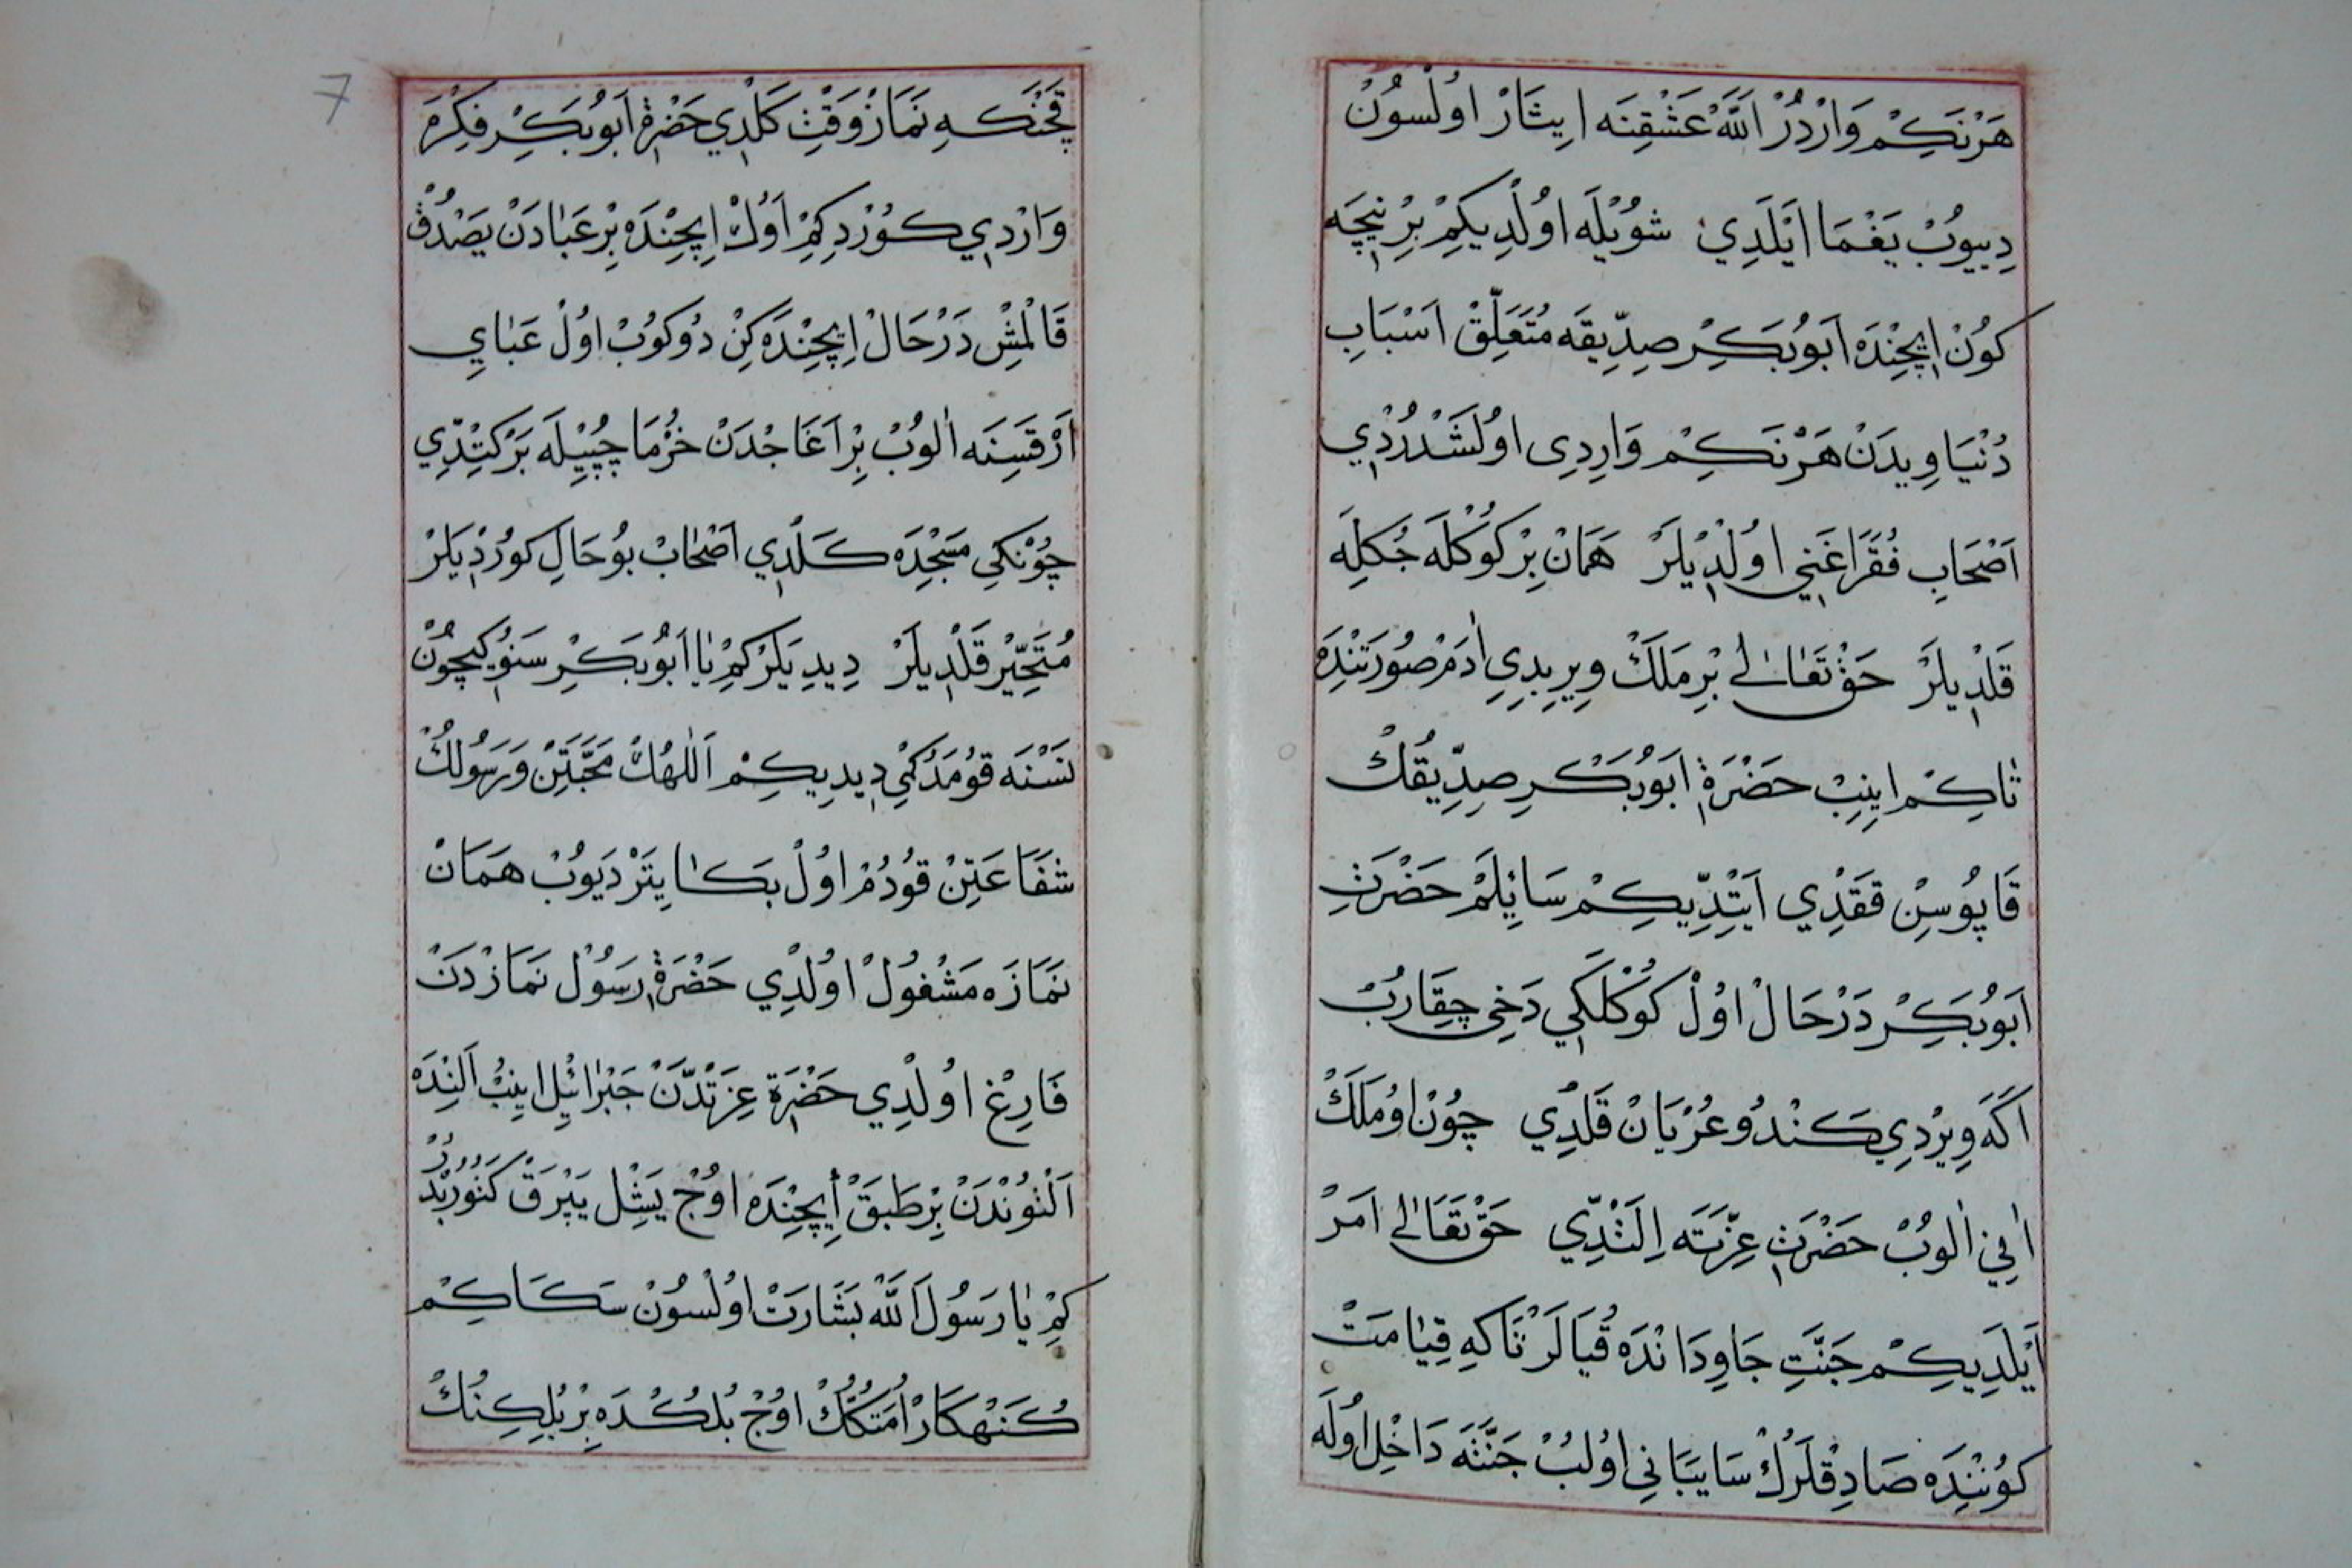 هَرْنَكِمْ وَارْدُرْ اَللّٰهْ عَشْقِنَه اِيثَارْ اوُلْسُونْ
دِييوُبْ يَغْمَا اَيْلَدِيْ شوُيْلَه اوُلْدِيكِمْ بِرْ نِيچَه
كوُنْ اِيچِنْدَه اَبوُبَكِرْ صِدِّيقَه مُتَعَلِّقْ اَسْبَابِ
دُنْيَاوِيدَنْ هَرْنَكِمْ وَارِدِى اوُلَشْدُرْدِي
اَصْحَابِ فُقَرَا غَنِي اوُلْدِيلَرْ هَمَانْ بِرْ كوُكْلَه جُكِلَه
قَلْدِيلَرْ حَقْ تَعَالٰى بِرْ مَلَكْ وِيرِيدِي اٰدَمْ صُورَتِنْدَه
تَاكِمْ اِينِبْ حَضْرَةِ اَبوُبَكْرِ صِدِّيقُكْ
قَاپُوسِنْ قَقَدِي اَيْتِدِّيكِمْ سَائِلَمْ حَضْرَتِ
اَبوُبَكِرْ دَرْحَالْ اوُلْ كوُكْلَكِي دَخِي چِقَارُبْ
اَكَه وِيرْدِي كَنْدُو عُرْيَانْ قَلْدِي چوُنْ اوُ مَلَكْ
اٰنِي اٰلوُبْ حَضْرَتِ عِزَّتَه اِلَتْدِّي حَقْ تَعَالٰى اَمَرْ
اَيْلَدِيكِمْ جَنَّتِ جَاوِدَانْدَه قُيَالَرْ تَاكِه قِيَامَتْ
كوُنِنْدَه صَادِقْلَرُكْ سَايَبَانِي اوُلُبْ جَنَّتَه دَاخِلْ اوُلَه
قَچَنْكِه نَمَازْ وَقْتِ كَلْدِي حَضْرَةِ اَبوُبَكِرْ فِكْرَه
وَارْدِي كوُرْدِكِمْ اَوُكْ اِيچِنْدَه بِرْ عَبَادَنْ
قَالْمِشْ دَرْحَالْ اِيچِنْدَه كِنْ دُوكوُبْ اوُلْ عَبَايِ
اَرْقَسِنَه اٰلوُبْ بِرْ اَغَاجْدَنْ خُرْمَا چُپِيلَه بَرْكِتْدِّي
چوُنْكِي مَسْجِدَه كَلْدِي اَصْحَابْ بوُ حَالِ كوُرْدِيلَرْ
مُتَحَيِّرْ قَلْدِيلَرْ دِيدِيلَرْ كِمْ يَا اَبوُبَكِرْ سَنْوِكِيچوُنْ
نَسْنَه قوُمَدُكْمِي دِيدِيكِمْ اَللّٰهُكْ مَحَبَّتِنْ وَرَسُولُكْ
شَفَاعَتِنْ قوُدُمْ اوُلْ بَكَا يِتَرْ دَيوُبْ هَمَانْ
نَمَازَه مَشْغُولْ اوُلْدِي حَضْرَةِ رَسُولْ نَمَازْدَنْ
فَارِغْ اوُلْدِي حَضْرَةِ عِزَّتْدَنْ جَبْرَائِلْ اِينِبْ اَلِنْدَه
اَلْتوُنْدَنْ بِرْ طَبَقْ اِيچِنْدَه اوُچْ يَشِلْ يَپْرَقْ كَتوُرْدُ
كِمْ يَا رَسُولَ اللّٰهْ بَشَارَتْ اوُلْسوُنْ سَكَاكِمْ
كُنَهْكَارْ اُمَّتُكُكْ اوُچْ بُلُكُدَه بِرْ بُلِكِنُكْ